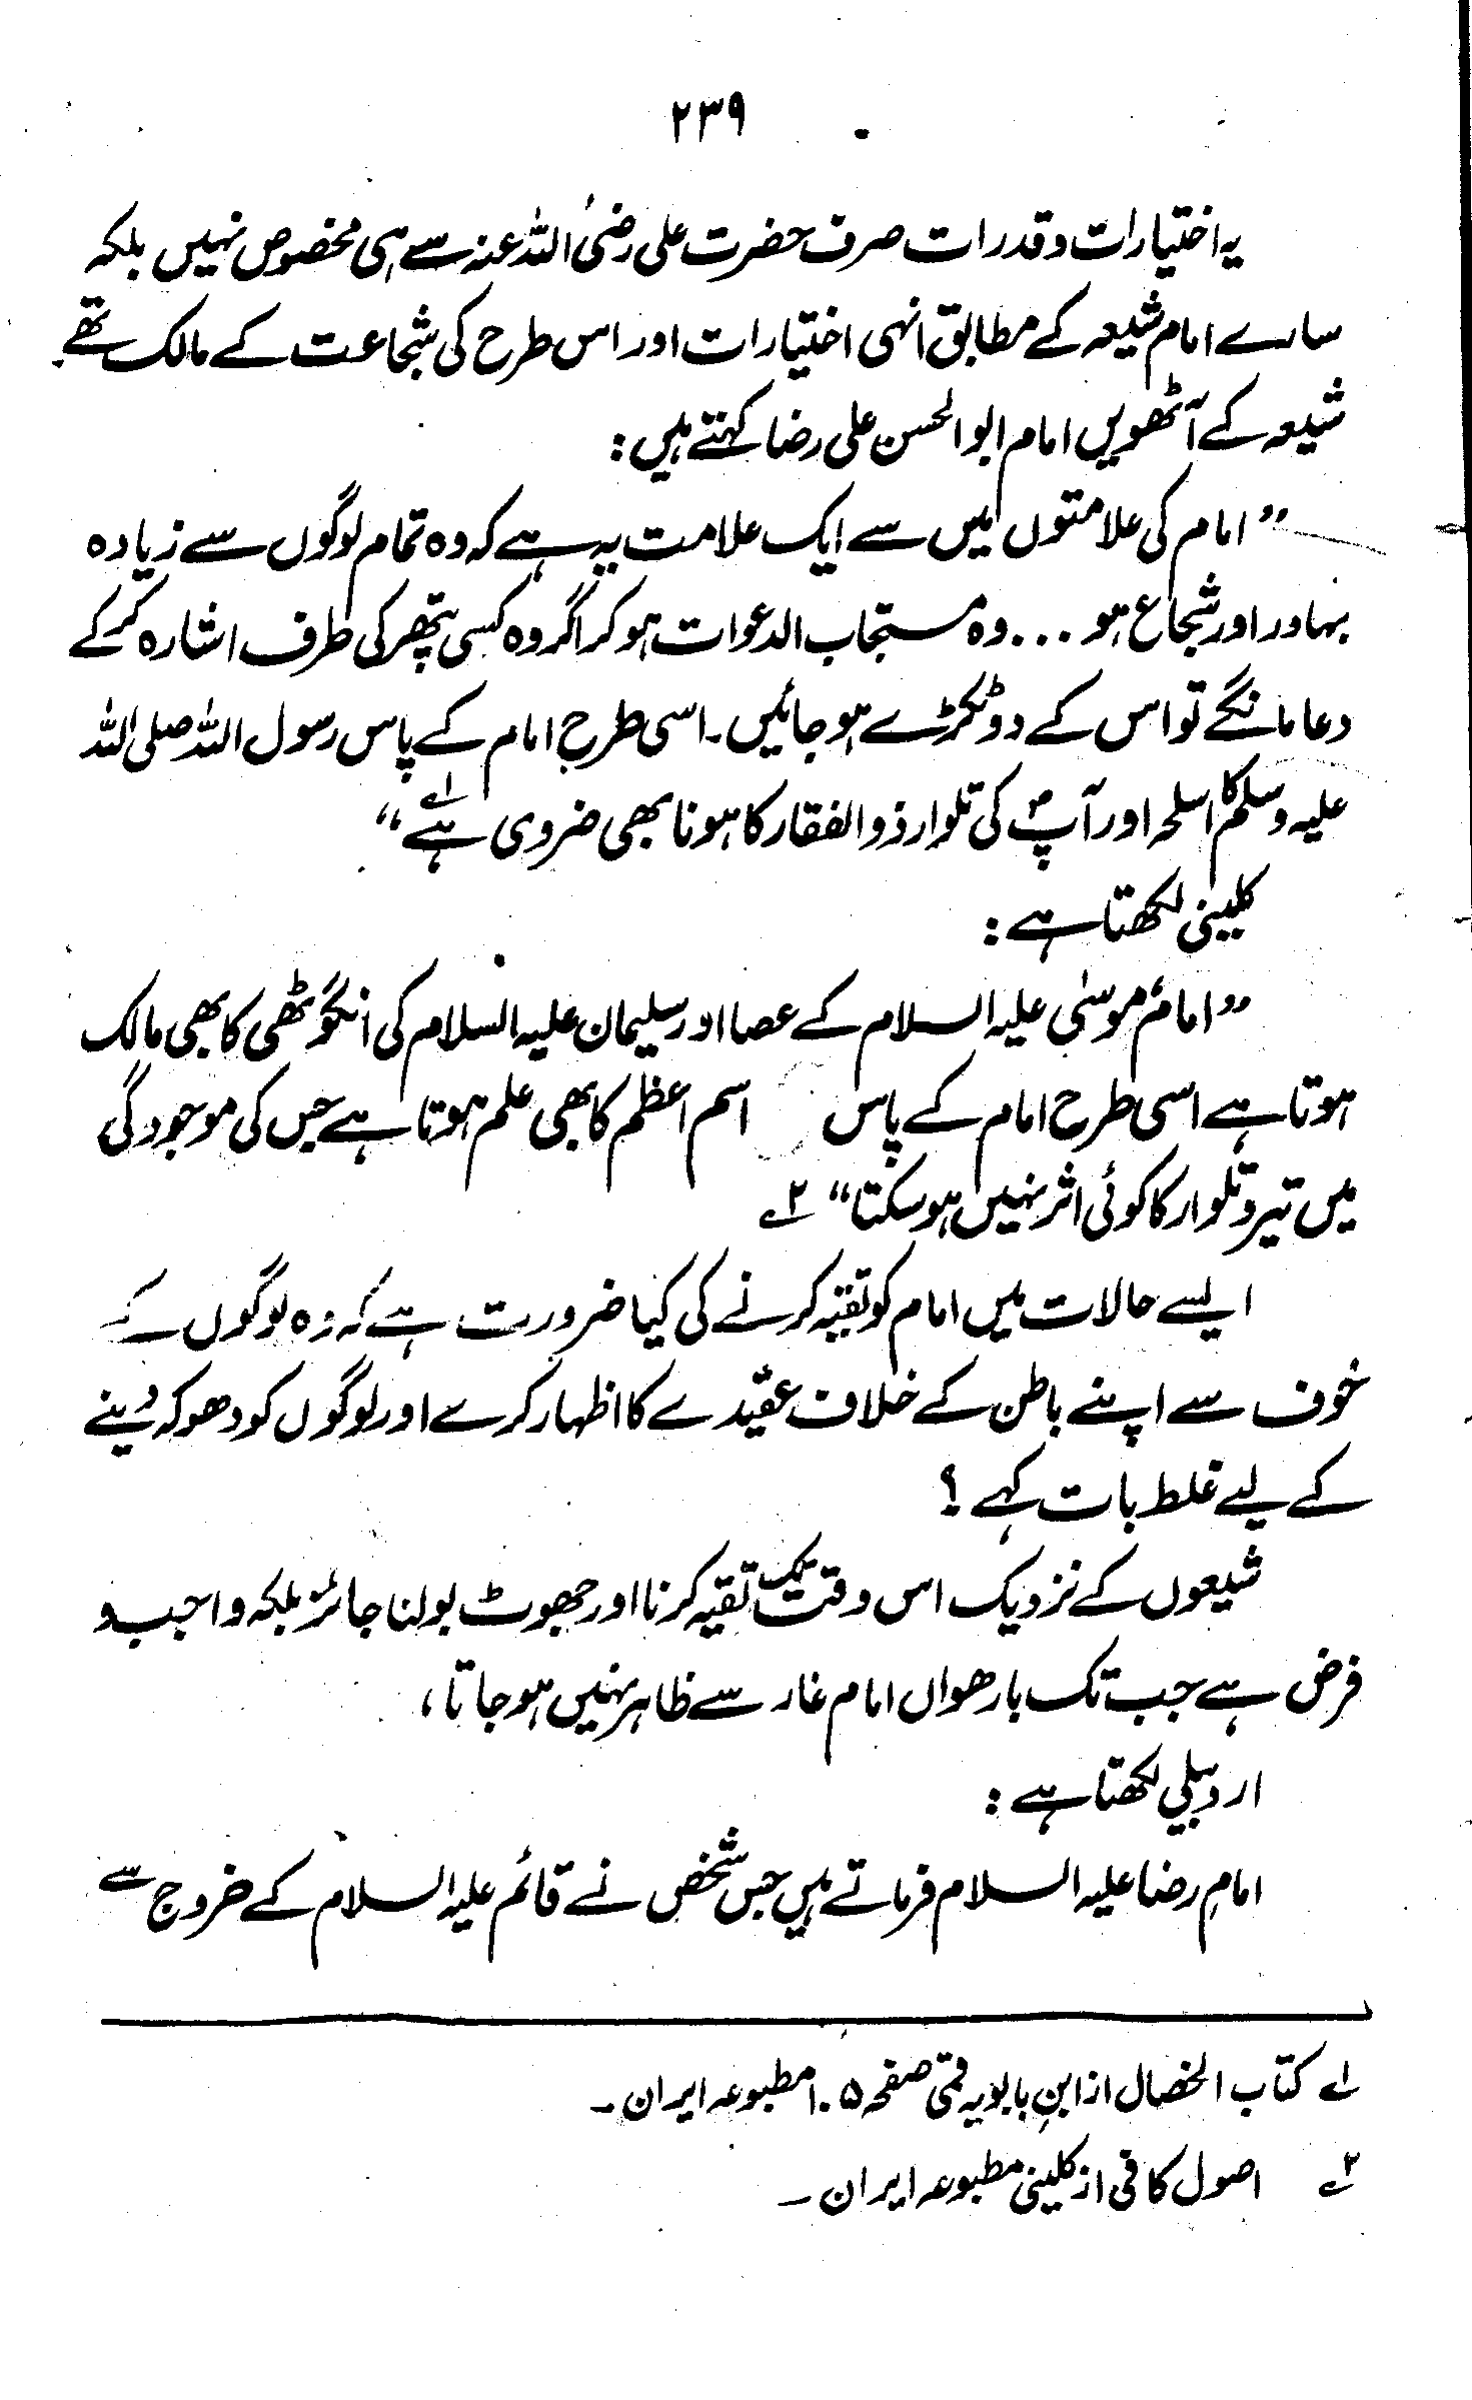 ۲۳۹
یہ اختیارات و قدرات صرف حضرت علی رضی اللہ عنہ سے ہی مخصوص نہیں بلکہ
سارے امام شیعہ کے مطابق انہی اختیارات اور اس طرح کی شجاعت کے مالک تھے۔
شیعہ کے آٹھویں امام ابوالحسن علی رضا کہتے ہیں :
”امام کی علامتوں میں سے ایک علامت یہ ہے کہ وہ تمام لوگوں سے زیادہ
بہادر اور شجاع ہو ... وہ مستجاب الدعوات ہو کر اگر وہ کسی پتھر کی طرف اشارہ کر کے
دعا مانگے تو اس کے دو ٹکڑے ہو جائیں۔ اسی طرح امام کے پاس رسول اللہ صلی اللہ
علیہ وسلم کا اسلحہ اور آپؐ کی تلوار ذوالفقار کا ہونا بھی ضروری ہے“ ۱؎
کلینی لکھتا ہے :
”امام موسٰی علیہ السلام کے عصا اور سلیمان علیہ السلام کی انگوٹھی کا بھی مالک
ہوتا ہے اسی طرح امام کے پاس اسم اعظم کا بھی علم ہوتا ہے جس کی موجودگی
میں تیر و تلوار کا کوئی اثر نہیں ہو سکتا“ ۲؎
ایسے حالات میں امام کو تقیہ کرنے کی کیا ضرورت ہے کہ وہ لوگوں کے
خوف سے اپنے باطن کے خلاف عقیدے کا اظہار کرے اور لوگوں کو دھوکہ دینے
کے لیے غلط بات کہے ؟
شیعوں کے نزدیک اس وقت تک تقیہ کرنا اور جھوٹ بولنا جائز بلکہ واجب و
فرض ہے جب تک بارھواں امام غار سے ظاہر نہیں ہو جاتا،
اردبیلی لکھتا ہے :
امام رضا علیہ السلام فرماتے ہیں جس شخص نے قائم علیہ السلام کے خروج سے
۱؎ کتاب الخصال از ابنِ بابویہ قمّی صفحہ ۱۰۵ مطبوعہ ایران۔
۲؎ اصول کافی از کلینی مطبوعہ ایران۔